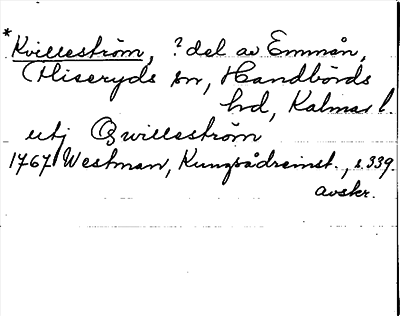 *Kvilleström, ? del av Emmån,
Hiseryds sn, Handbörds
hd, Kalmar l.
utj Qwilleström
1767 Westman, Kungsådreinst., s. 339.
avskr.